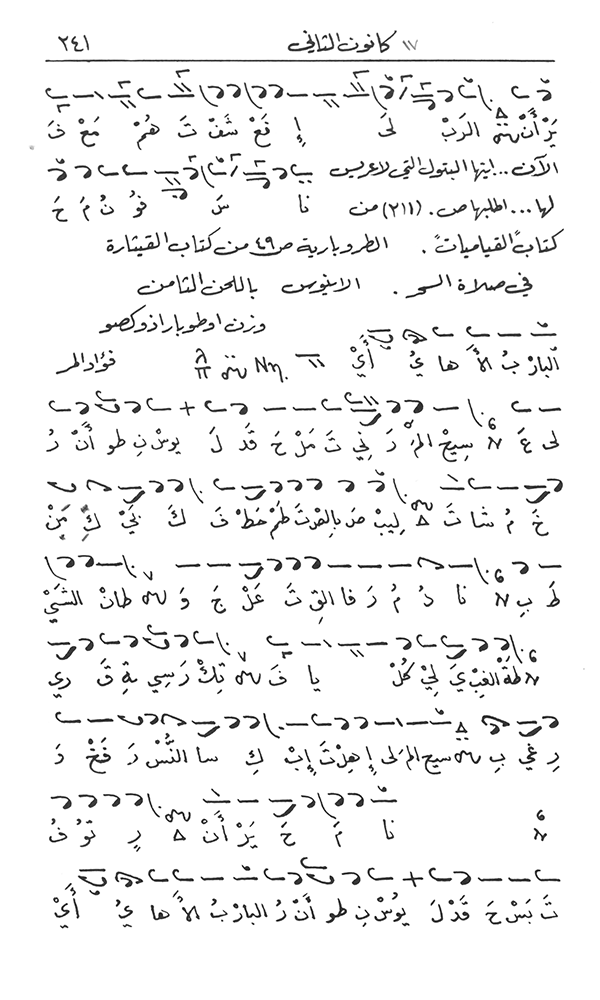 ١٧ كانون الثاني ٢٤١
يَرْ أَنْ الرَبْ لَى إِ فَعْ شَفْ تَ هُمْ مَعْ فَ
الآن.. ايتها البتول التي لا عريس
لها... اطلبها ص. (٢١١) من نا سَ فُو نُ مَ حَ
كتاب القياميات. الطروبارية ص ٤٩ من كتاب القيثارة
في صلاة السحر. الاينوس باللحن الثامن
وزن اوطوباراذوكصو
البارْ بُ الأَ ها يُ أَيْ فؤاد المر
لى عَ سيح المَ رَ نِي تَ مَلْ حَ قَدْ لَ يوسْ نِ طو أَنْ رُ
خَ مُ شا تَ لِيبْ صَ بالص رْتَ طَمْ خَطْ فَ كَ بَيْ كِ مَنْ
طَ بِ نا دُ مُ رَ فا الِقِ تَ عَلْ جَ وَ طانْ الشَيْ
طَةْ الغِبْ يَ لِيْ كُلْ يا فَ تِكْ رَ سِي ةِ قَ دِي
رِ غَي بِ سيح الم لى إِ هِلْ تَ إِبْ كِ سا النُسْ رَ فَخْ دَ
نا مَ حَ يَرْ أَنْ رِ تَوْ فُ
تَ بَسْ حَ قَدْ لَ يُوسْ نِ طو أَنْ رُ البارْ بُ الأَ ها يُ أَيْ